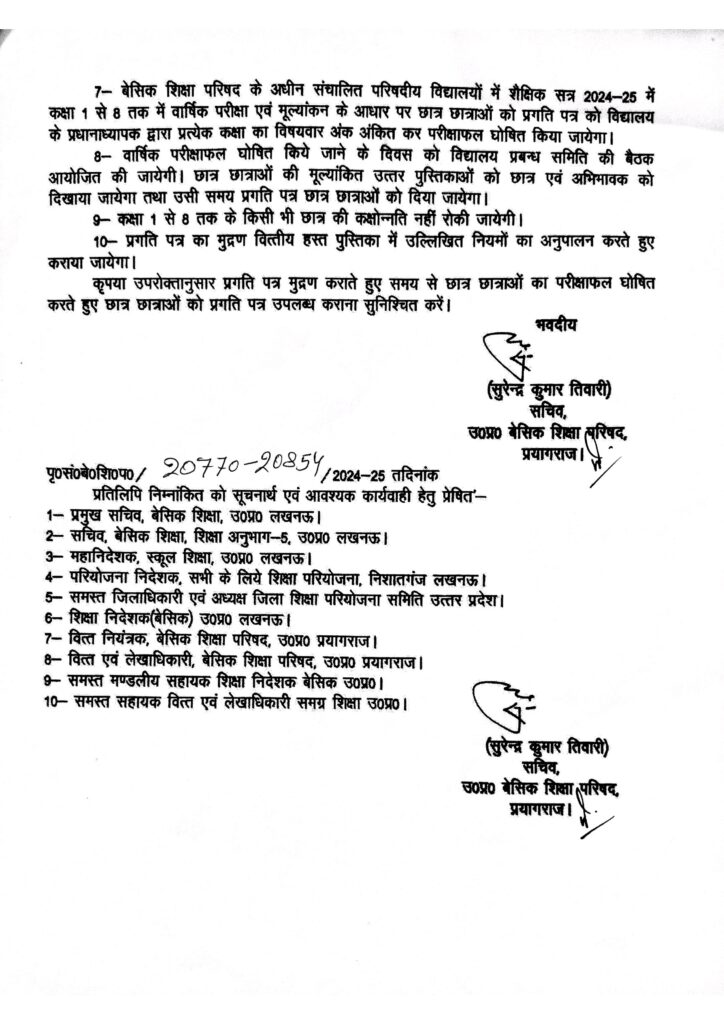 7– बेसिक शिक्षा परिषद के अधीन संचालित परिषदीय विद्यालयों में शैक्षिक सत्र 2024–25 में
कक्षा 1 से 8 तक में वार्षिक परीक्षा एवं मूल्यांकन के आधार पर छात्र छात्राओं को प्रगति पत्र को विद्यालय
के प्रधानाध्यापक द्वारा प्रत्येक कक्षा का विषयवार अंक अंकित कर परीक्षाफल घोषित किया जायेगा।
8– वार्षिक परीक्षाफल घोषित किये जाने के दिवस को विद्यालय प्रबन्ध समिति की बैठक
आयोजित की जायेगी। छात्र छात्राओं की मूल्यांकित उत्तर पुस्तिकाओं को छात्र एवं अभिभावक को
दिखाया जायेगा तथा उसी समय प्रगति पत्र छात्र छात्राओं को दिया जायेगा।
9– कक्षा 1 से 8 तक के किसी भी छात्र की कक्षोन्नति नहीं रोकी जायेगी।
10– प्रगति पत्र का मुद्रण वित्तीय हस्त पुस्तिका में उल्लिखित नियमों का अनुपालन करते हुए
कराया जायेगा।
कृपया उपरोक्तानुसार प्रगति पत्र मुद्रण कराते हुए समय से छात्र छात्राओं का परीक्षाफल घोषित
करते हुए छात्र छात्राओं को प्रगति पत्र उपलब्ध कराना सुनिश्चित करें।
भवदीय
(सुरेन्द्र कुमार तिवारी)
सचिव,
उ0प्र0 बेसिक शिक्षा परिषद,
प्रयागराज।
पृ0सं0बे0शि0प0/ 20770-20854/2024–25 तदिनांक
प्रतिलिपि निम्नांकित को सूचनार्थ एवं आवश्यक कार्यवाही हेतु प्रेषितः–
1– प्रमुख सचिव, बेसिक शिक्षा, उ0प्र0 लखनऊ।
2– सचिव, बेसिक शिक्षा, शिक्षा अनुभाग–5, उ0प्र0 लखनऊ।
3– महानिदेशक, स्कूल शिक्षा, उ0प्र0 लखनऊ।
4– परियोजना निदेशक, सभी के लिये शिक्षा परियोजना, निशातगंज लखनऊ।
5– समस्त जिलाधिकारी एवं अध्यक्ष जिला शिक्षा परियोजना समिति उत्तर प्रदेश।
6– शिक्षा निदेशक(बेसिक) उ0प्र0 लखनऊ।
7– वित्त नियंत्रक, बेसिक शिक्षा परिषद, उ0प्र0 प्रयागराज।
8– वित्त एवं लेखाधिकारी, बेसिक शिक्षा परिषद, उ0प्र0 प्रयागराज।
9– समस्त मण्डलीय सहायक शिक्षा निदेशक बेसिक उ0प्र0।
10– समस्त सहायक वित्त एवं लेखाधिकारी समग्र शिक्षा उ0प्र0।
(सुरेन्द्र कुमार तिवारी)
सचिव,
उ0प्र0 बेसिक शिक्षा परिषद,
प्रयागराज।